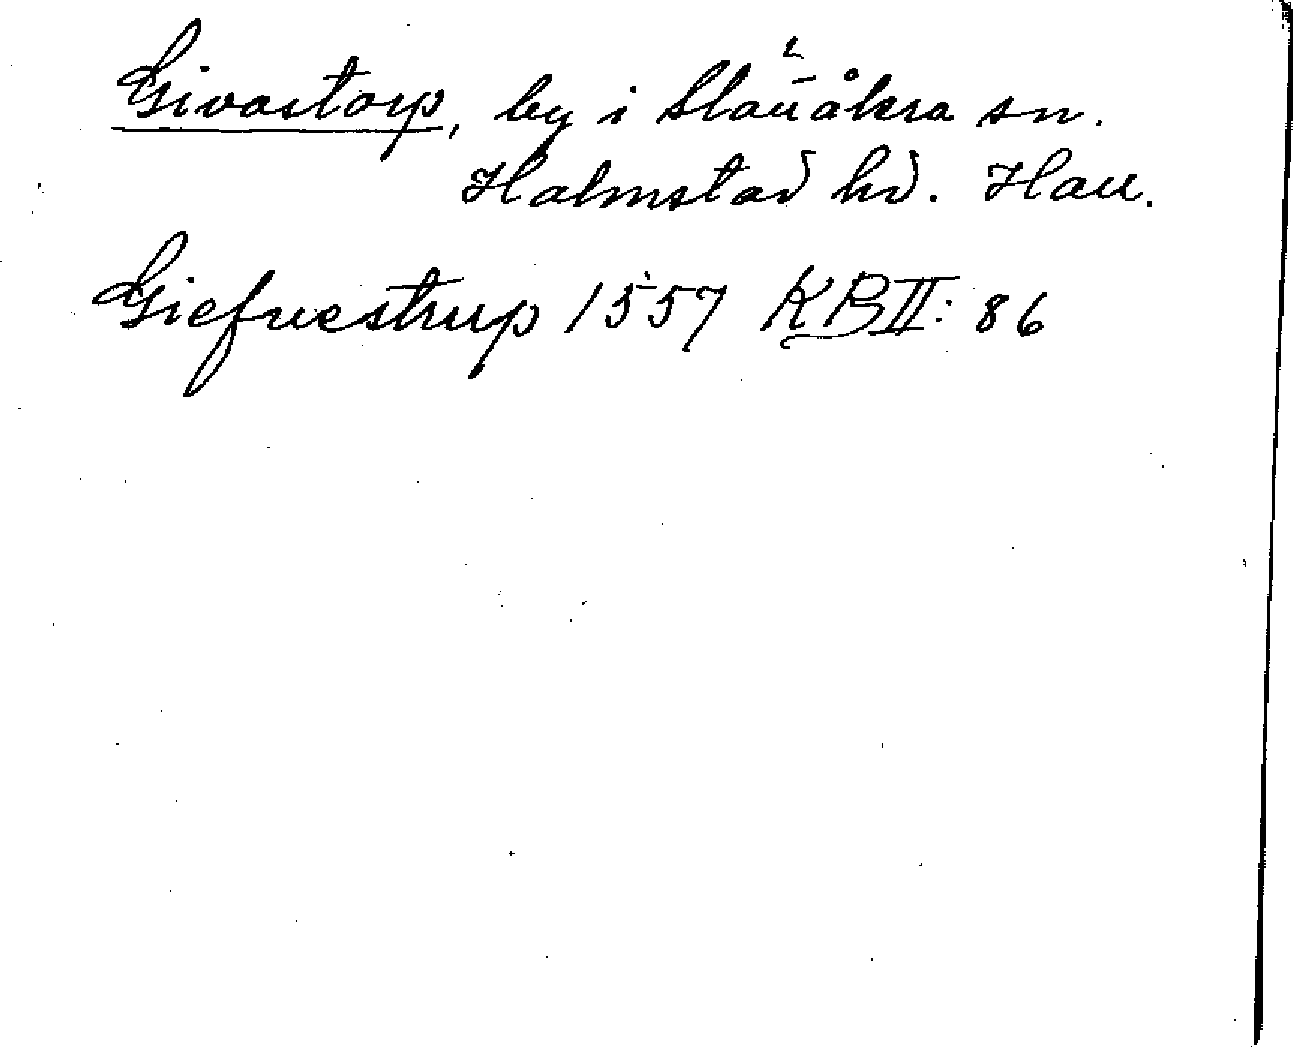 Givastorp, by i Slättåkra sn.
Halmstad hd. Hall.
Giefuestrup 1557 KB II: 86